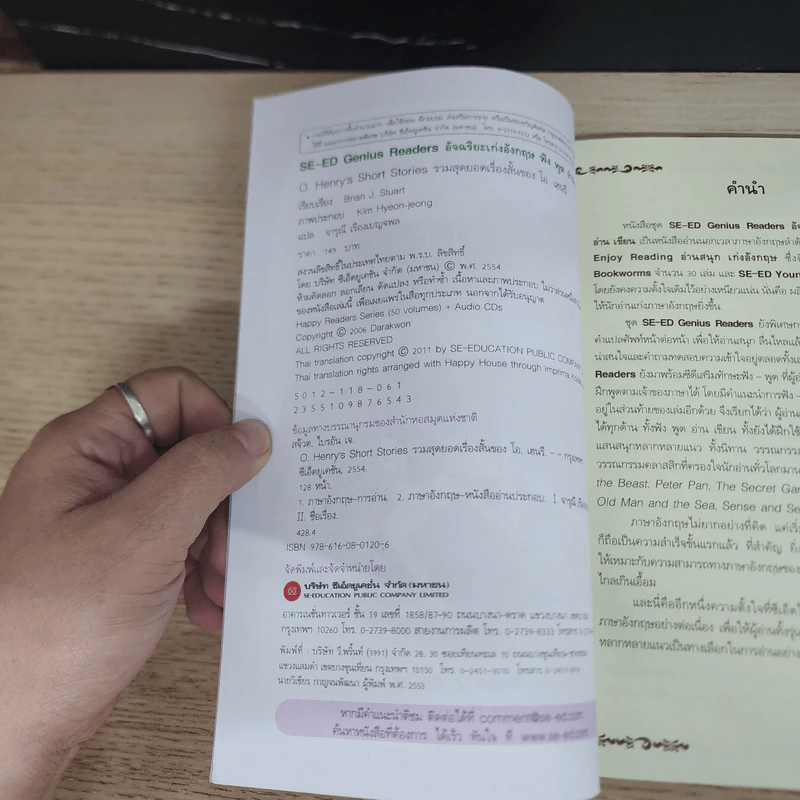 SE-ED Genius Readers อัจฉริยะเก่งอังกฤษ ฟัง พูด
O. Henry's Short Stories รวมสุดยอดเรื่องสั้นของ โอ. เฮนรี
เรียบเรียง Brian J. Stuart
ภาพประกอบ Kim Hyeon-jeong
แปล จารุณี เรืองเบญจพล
ราคา 149 บาท
สงวนลิขสิทธิ์ในประเทศไทยตาม พ.ร.บ. ลิขสิทธิ์
โดย บริษัท ซีเอ็ดยูเคชั่น จำกัด (มหาชน) © พ.ศ. 2554
ห้ามคัดลอก ลอกเลียน ดัดแปลง หรือทำซ้ำ เนื้อหาและภาพประกอบ ไม่ว่าส่วนหนึ่ง
ของหนังสือเล่มนี้ เพื่อเผยแพร่ในสื่อทุกประเภท นอกจากได้รับอนุญาต
Happy Readers Series (50 volumes) + Audio CDs
Copyright © 2006 Darakwon
ALL RIGHTS RESERVED
Thai translation copyright © 2011 by SE-EDUCATION PUBLIC COMPANY
Thai translation rights arranged with Happy House through Imprima
5012-118-061
2355109876543
ข้อมูลทางบรรณานุกรมของสำนักหอสมุดแห่งชาติ
สจ๊วต, ไบรอัน เจ.
O. Henry's Short Stories รวมสุดยอดเรื่องสั้นของ โอ. เฮนรี. -- กรุงเทพฯ
ซีเอ็ดยูเคชั่น, 2554.
128 หน้า.
1. ภาษาอังกฤษ-การอ่าน. 2. ภาษาอังกฤษ-หนังสืออ่านประกอบ. I. จารุณี
II. ชื่อเรื่อง.
428.4
ISBN 978-616-08-0120-6
จัดพิมพ์และจัดจำหน่ายโดย
บริษัท ซีเอ็ดยูเคชั่น จำกัด (มหาชน)
SE-EDUCATION PUBLIC COMPANY LIMITED
อาคารเนชั่นทาวเวอร์ ชั้น 19 เลขที่ 1858/87-90 ถนนบางนา-ตราด แขวงบางนา
กรุงเทพฯ 10260 โทร. 0-2739-8000
พิมพ์ที่ : บริษัท วี.พริ้นท์ (1991) จำกัด
แขวงแสมดำ เขตบางขุนเทียน กรุงเทพฯ 10150
นายวิเชียร กาญจนพัฒนา ผู้พิมพ์ พ.ศ. 2553
หากมีคำแนะนำติชม ติดต่อได้ที่ comment@se-ed.com
ค้นหาหนังสือที่ต้องการ ได้เร็ว ทันใจ ที่ www.se-ed.com
คำนำ
หนังสือชุด SE-ED Genius Readers
อ่าน เขียน เป็นหนังสืออ่านนอกเวลาภาษาอังกฤษ
Enjoy Reading อ่านสนุก เก่งอังกฤษ
Bookworms จำนวน 30 เล่ม และ SE-ED
โดยยังคงความตั้งใจเดิมไว้อย่างเหนียวแน่น นั่นคือ
ให้นักอ่านเก่งภาษาอังกฤษยิ่งขึ้น
ชุด SE-ED Genius Readers ยังพิเศษ
คำแปลศัพท์หน้าต่อหน้า เพื่อให้อ่านสนุก ลื่นไหล
น่าสนใจและคำถามทดสอบความเข้าใจอยู่ตลอดทั้ง
Readers ยังมาพร้อมซีดีเสริมทักษะฟัง - พูด
ฝึกพูดตามเจ้าของภาษาได้ โดยมีคำแนะนำการฟัง -
อยู่ในส่วนท้ายของเล่มอีกด้วย จึงเรียกได้ว่า
ได้ทุกด้าน ทั้งฟัง พูด อ่าน เขียน ทั้งยังได้ฝึกใช้
แสนสนุกหลากหลายแนว ทั้งนิทาน วรรณกรรม
วรรณกรรมคลาสสิกที่ครองใจนักอ่านทั่วโลก
the Beast, Peter Pan, The Secret
Old Man and the Sea, Sense and
ภาษาอังกฤษไม่ยากอย่างที่คิด แต่
ก็ถือเป็นความสำเร็จขั้นแรกแล้ว ที่สำคัญ
ให้เหมาะกับความสามารถทางภาษาอังกฤษของ
ไกลเกินเอื้อม
และนี่คืออีกหนึ่งความตั้งใจที่
ภาษาอังกฤษอย่างต่อเนื่อง เพื่อให้ผู้อ่าน
หลากหลายแนวเป็นทางเลือกในการอ่าน